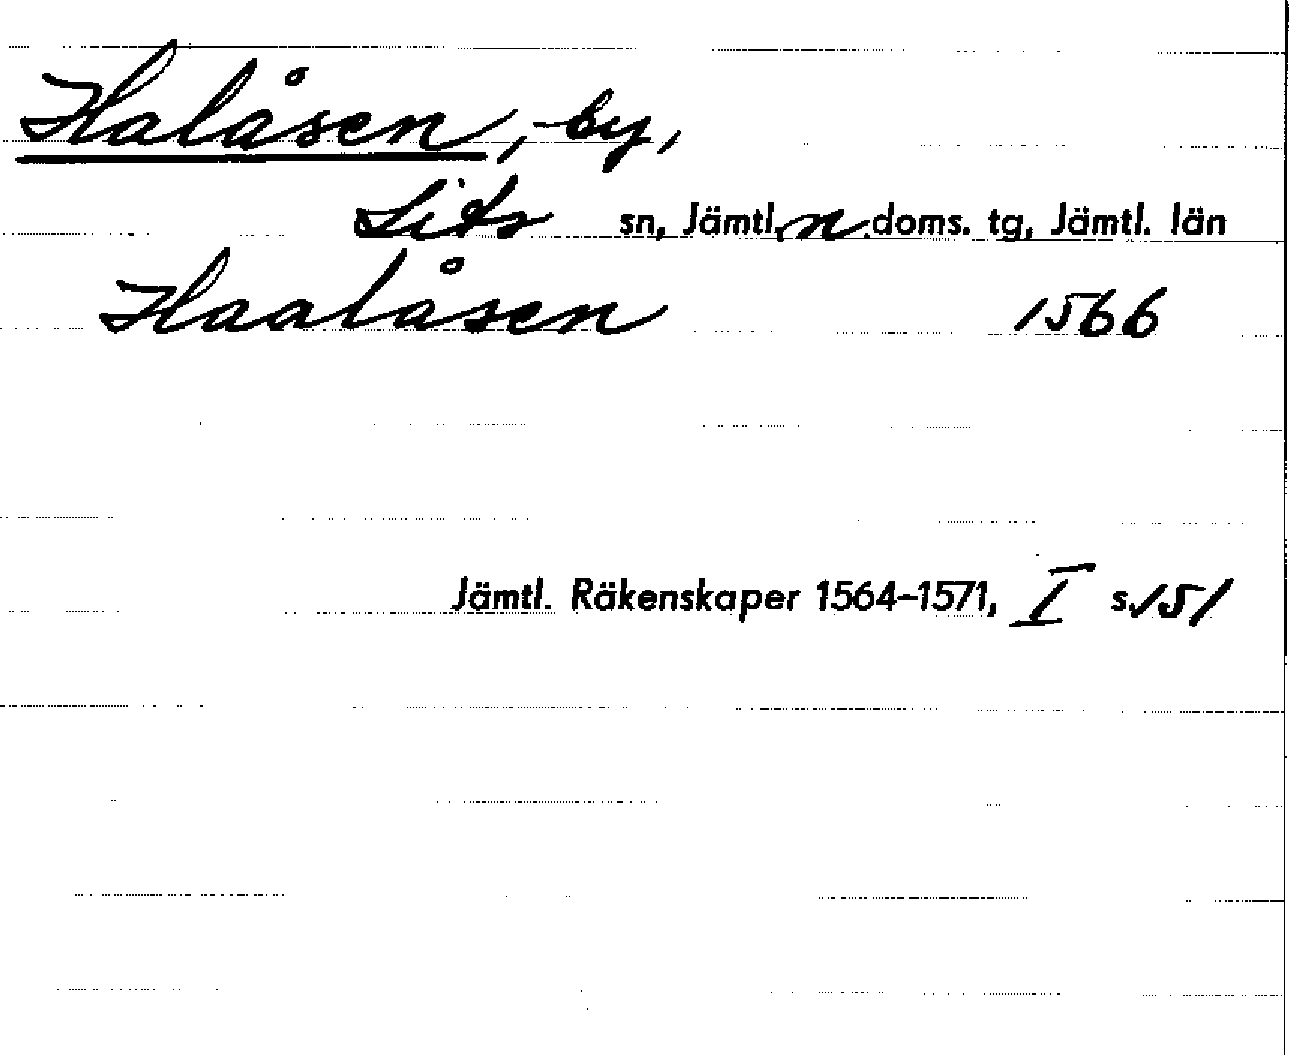 Halåsen, by,
Lits sn, Jämtl. n. doms. tg, Jämtl. län
Haalåsen 1566
Jämtl. Räkenskaper 1564–1571, I s. 151